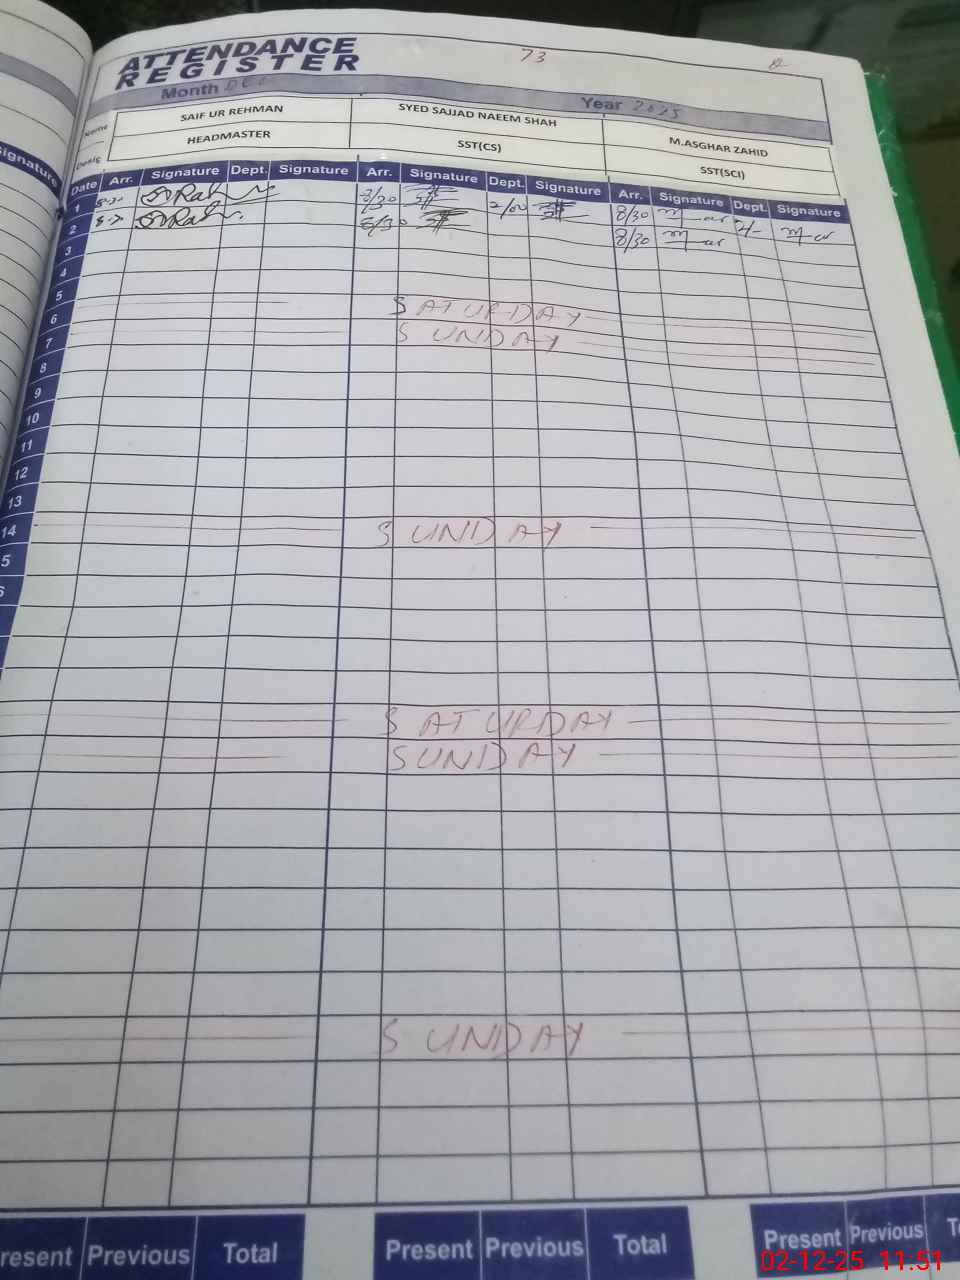 73
ATTENDANCE
REGISTER
Month Dec Year 2025
Name SAIF UR REHMAN SYED SAJJAD NAEEM SHAH M.ASGHAR ZAHID
Desig HEADMASTER SST(CS) SST(SCI)
Signature
Date Arr. Signature Dept. Signature Arr. Signature Dept. Signature Arr. Signature Dept. Signature
1 8/30 2/00 8/30
2 8/30 8/30
3
4
5
6 SATURDAY
7 SUNDAY
8
9
10
11
12
13
14 SUNDAY
5
SATURDAY
SUNDAY
SUNDAY
resent Previous Total Present Previous Total Present Previous
02-12-25 11:51